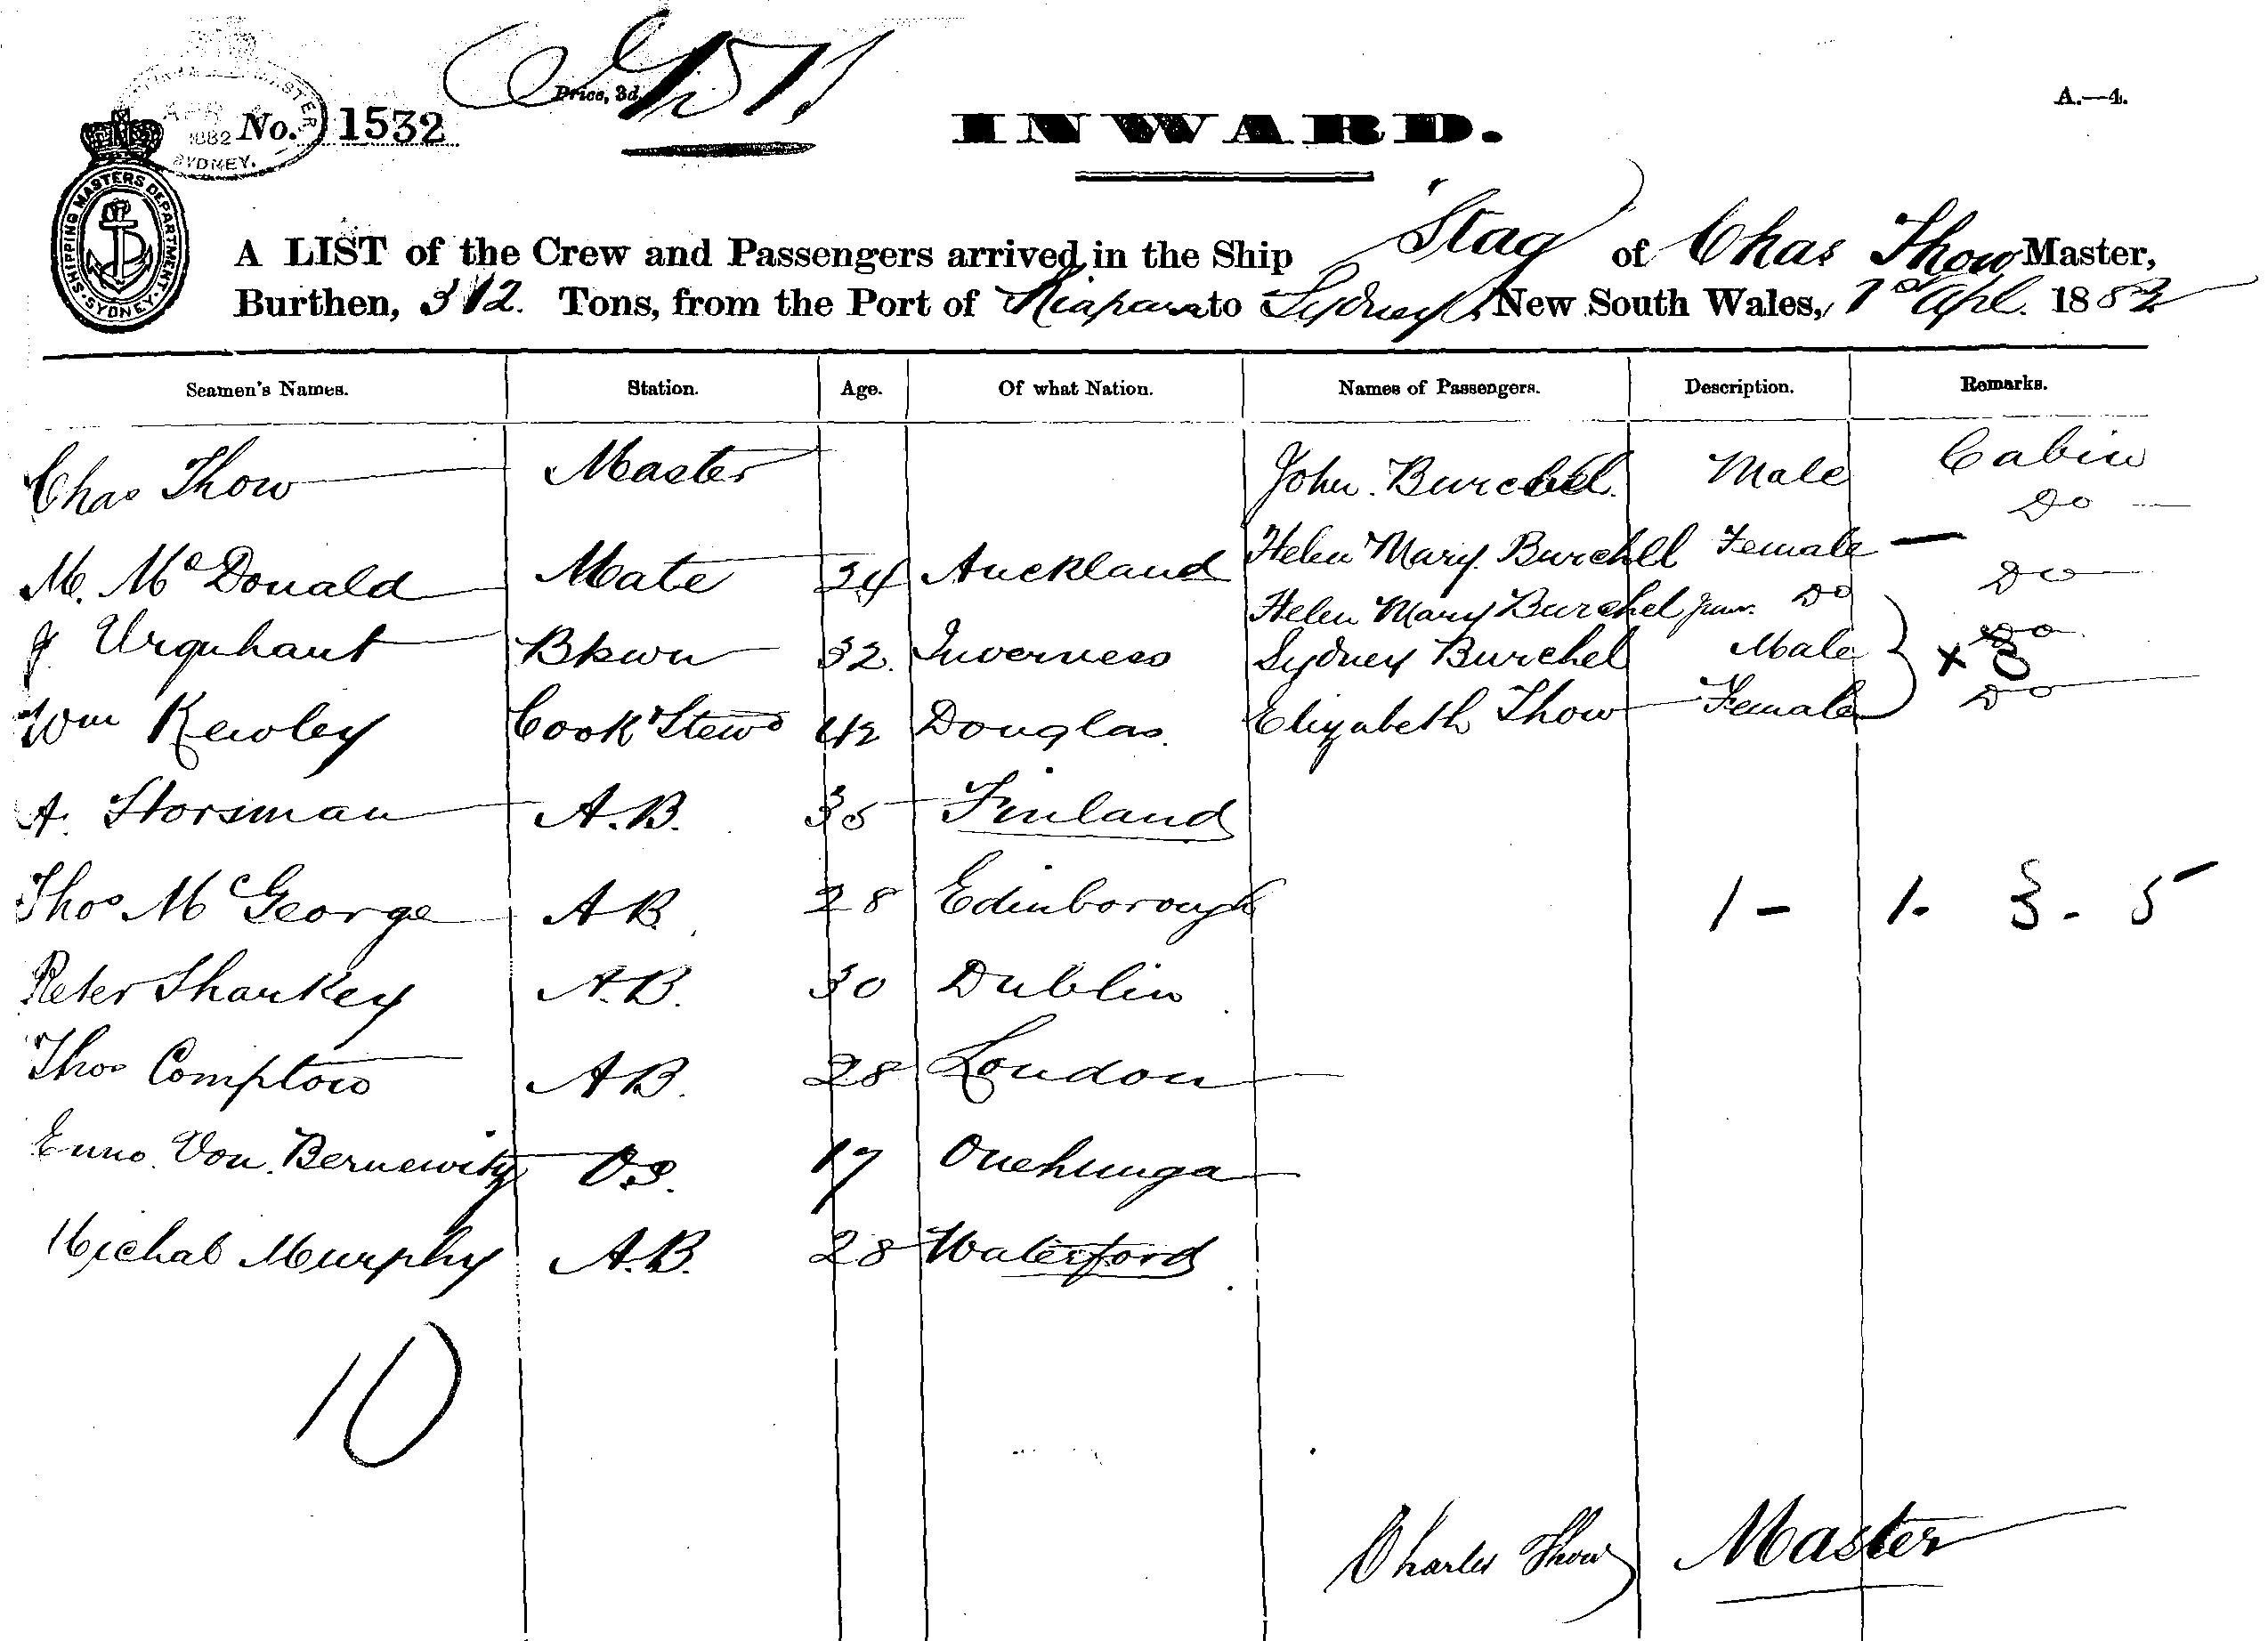 A.—4.
APR
1882
SYDNEY.
No. 1532
Price, 3d.
INWARD.
SHIPPING MASTERS DEPARTMENT. SYDNEY.
A LIST of the Crew and Passengers arrived in the Ship Stag of Chas Thow Master,
Burthen, 312. Tons, from the Port of to Sydney New South Wales, Apl. 1882
Seamen's Names. Station. Age. Of what Nation. Names of Passengers. Description. Remarks.
Chas Thow Master John Burchell Male Cabin
Do
Helen Mary Burchell Female —
M. McDonald Mate 34 Auckland Do
Helen Mary Burchel Junr. Do
J. Urquhart Bkwn 32. Inverness Sydney Burchel Male Do
x 3
Wm Kewley Cook & Stewd 42 Douglas. Elizabeth Thow Female Do
A. Storsman A.B. 35 Finland
Thos McGeorge AB. 28 Edinborough 1 - 1. 3 - 5
Peter Sharkey A.B. 30 Dublin
Thos Compton AB. 28 London
Enno Von Bernewitz O.S. 17 Onehunga
Michal Murphy A.B. 28 Waterford
10
Charles Thow Master